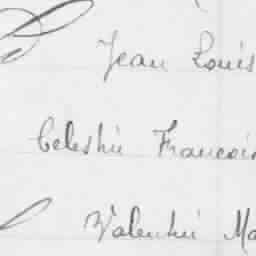 Jean Louis
Celestin Francois
Valentin Ma